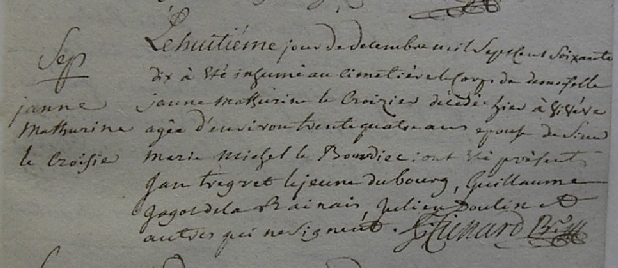 Sep
janne
Mathurine
le Croisie
Le huitiéme jour de decembre mil Sept Cent Soixante
dix à été inhumé au cimetière le Corps de demoiselle
janne Mathurine le Croizier décédé hier à
agée d'environ trente quatre ans epouse de Sieur
marie Michel le Bourdiec; ont été présents
jan tregret le jeune du bourg, Guillaume
gogos de la Rainais, julien Doulin et
autres qui ne Signent.